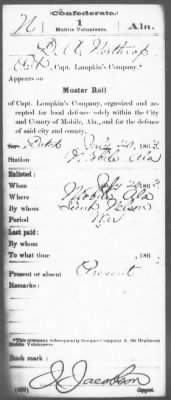 Confederate.
N 1 Ala.
Mobile Volunteers.
D. A. Northrop
, Capt. Lumpkin's Company.*
Appears on
Muster Roll
of Capt. Lumpkin's Company, organized and accepted for local defence solely within the City
and County of Mobile, Ala., and for the defence
of said city and county.
Dated July 20, 1863.
Station Mobile Ala
Enlisted:
When July 20, 1863.
Where Mobile Ala
By whom Lieut
Period War
Last paid:
By whom
To what time , 186
Present or absent Present
Remarks:
*This company subsequently became Company A, 1st Regiment
Mobile Volunteers.
Book mark:
J. Jacobson
Copyist.